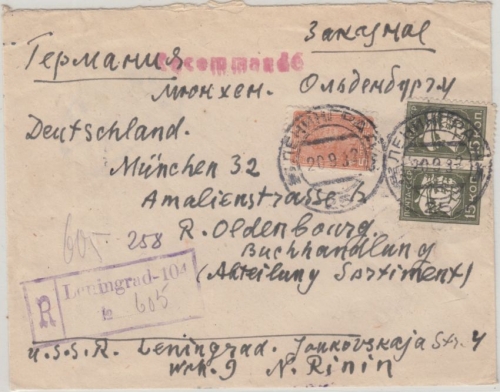 Заказное
Германия
Recommandé
Мюнхен. Ольденбургу
Deutschland.
München 32
Amalienstrasse
R. Oldenbourg.
Buchhandlung
(Abteilung Sortiment)
ЛЕНИНГРАД
20.9.33
ЛЕНИНГРАД
20.9.33
15 КОП.
605 258
R
Leningrad-104
№ 605
U.S.S.R. Leningrad. Joukovskaja Str. 4
W. 9 N. Rinin